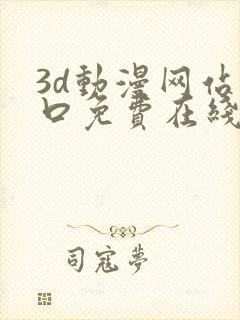 3d動漫网佔
口免費在綫
司寇夢